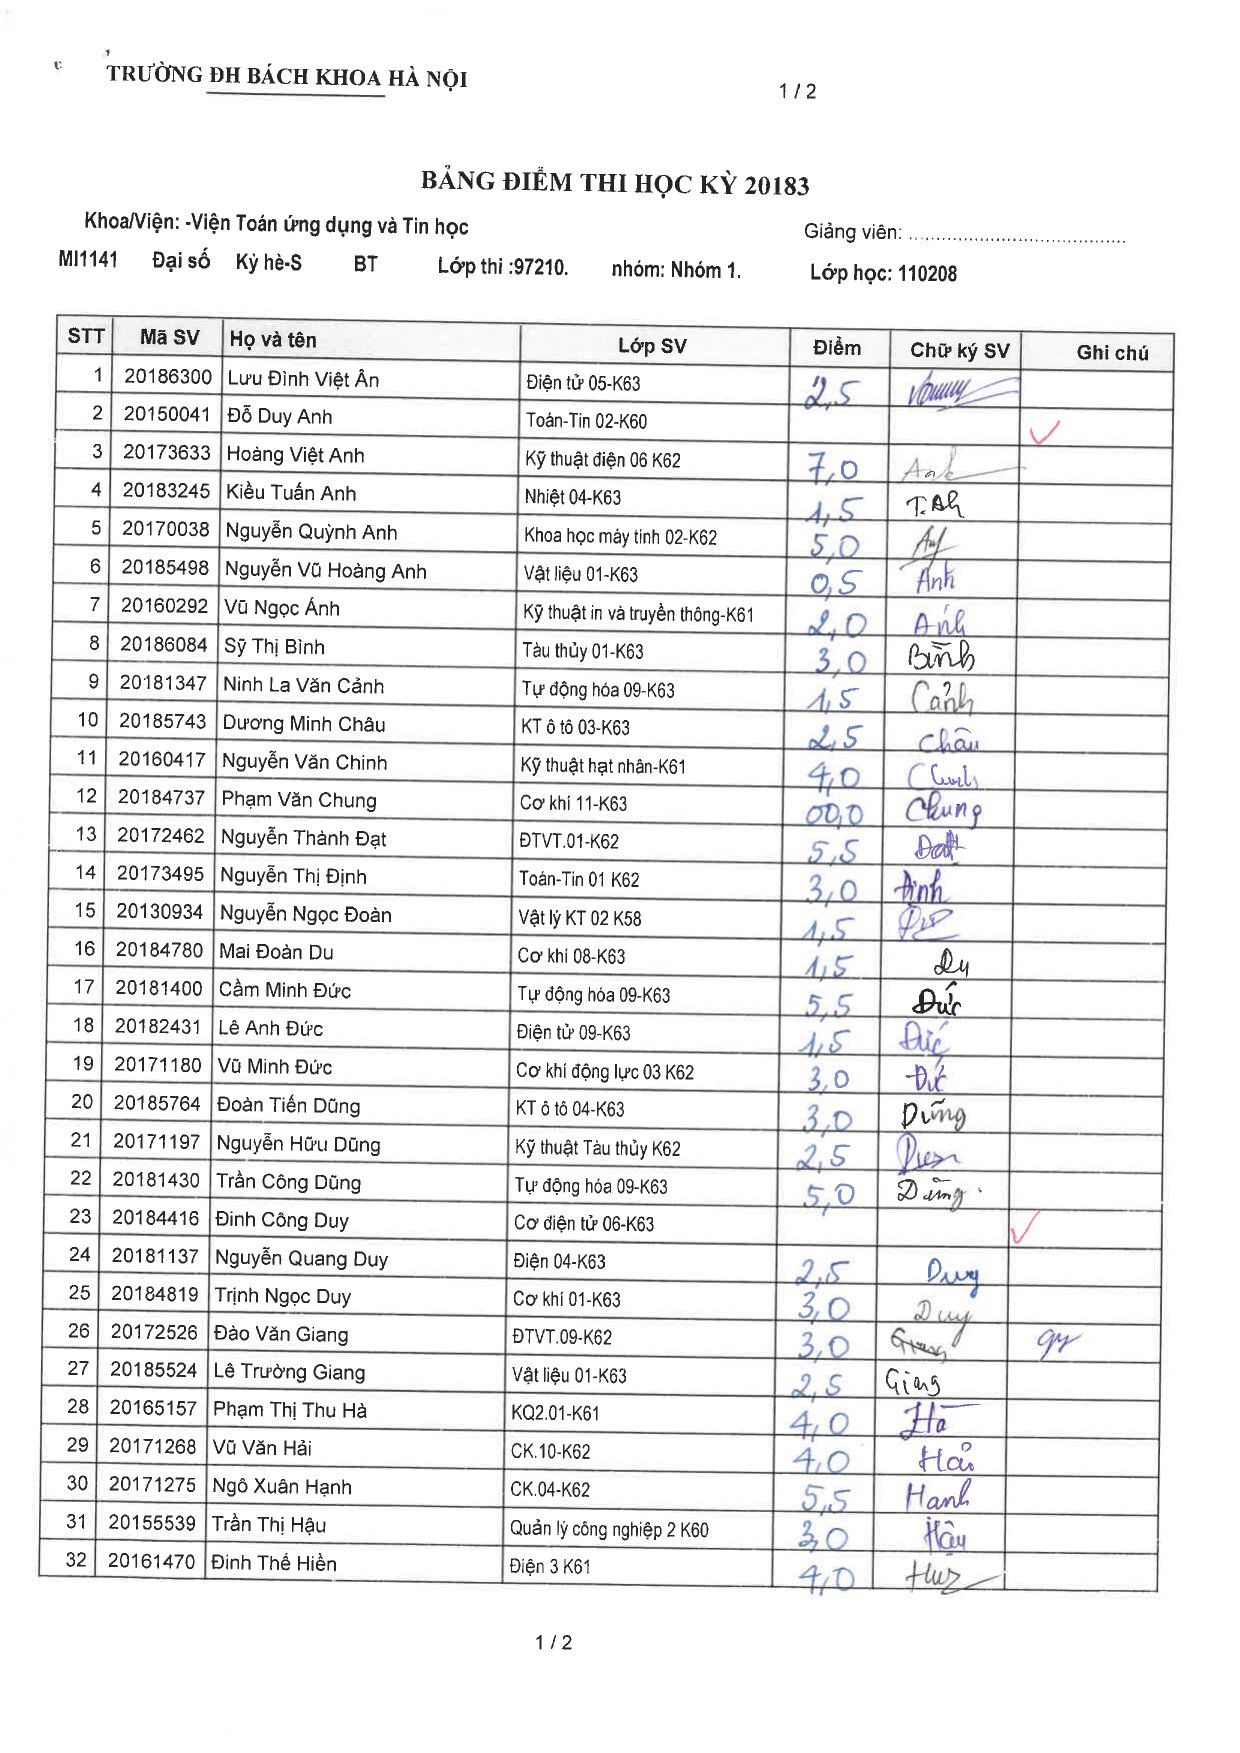 TRƯỜNG ĐH BÁCH KHOA HÀ NỘI
1 / 2
BẢNG ĐIỂM THI HỌC KỲ 20183
Khoa/Viện: -Viện Toán ứng dụng và Tin học Giảng viên: ........................................
MI1141 Đại số Kỳ hè-S BT Lớp thi :97210. nhóm: Nhóm 1. Lớp học: 110208
STT Mã SV Họ và tên Lớp SV Điểm Chữ ký SV Ghi chú
1 20186300 Lưu Đình Việt Ân Điện tử 05-K63 2,5
2 20150041 Đỗ Duy Anh Toán-Tin 02-K60
3 20173633 Hoàng Việt Anh Kỹ thuật điện 06 K62 7,0 Anh
4 20183245 Kiều Tuấn Anh Nhiệt 04-K63 1,5 T.Ah
5 20170038 Nguyễn Quỳnh Anh Khoa học máy tính 02-K62 5,0
6 20185498 Nguyễn Vũ Hoàng Anh Vật liệu 01-K63 0,5 Anh
7 20160292 Vũ Ngọc Ánh Kỹ thuật in và truyền thông-K61 2,0 Ánh
8 20186084 Sỹ Thị Bình Tàu thủy 01-K63 3,0 Bình
9 20181347 Ninh La Văn Cảnh Tự động hóa 09-K63 1,5 Cảnh
10 20185743 Dương Minh Châu KT ô tô 03-K63 2,5 Châu
11 20160417 Nguyễn Văn Chinh Kỹ thuật hạt nhân-K61 4,0 Chinh
12 20184737 Phạm Văn Chung Cơ khí 11-K63 00,0 Chung
13 20172462 Nguyễn Thành Đạt ĐTVT.01-K62 5,5 Đạt
14 20173495 Nguyễn Thị Định Toán-Tin 01 K62 3,0 Định
15 20130934 Nguyễn Ngọc Đoàn Vật lý KT 02 K58 1,5
16 20184780 Mai Đoàn Du Cơ khí 08-K63 1,5 Du
17 20181400 Cầm Minh Đức Tự động hóa 09-K63 5,5 Đức
18 20182431 Lê Anh Đức Điện tử 09-K63 1,5 Đức
19 20171180 Vũ Minh Đức Cơ khí động lực 03 K62 3,0 Đức
20 20185764 Đoàn Tiến Dũng KT ô tô 04-K63 3,0 Dũng
21 20171197 Nguyễn Hữu Dũng Kỹ thuật Tàu thủy K62 2,5
22 20181430 Trần Công Dũng Tự động hóa 09-K63 5,0 Dũng
23 20184416 Đinh Công Duy Cơ điện tử 06-K63
24 20181137 Nguyễn Quang Duy Điện 04-K63 2,5 Duy
25 20184819 Trịnh Ngọc Duy Cơ khí 01-K63 3,0 Duy
26 20172526 Đào Văn Giang ĐTVT.09-K62 3,0 Giang
27 20185524 Lê Trường Giang Vật liệu 01-K63 2,5 Giang
28 20165157 Phạm Thị Thu Hà KQ2.01-K61 4,0 Hà
29 20171268 Vũ Văn Hải CK.10-K62 4,0 Hải
30 20171275 Ngô Xuân Hạnh CK.04-K62 5,5 Hanh
31 20155539 Trần Thị Hậu Quản lý công nghiệp 2 K60 3,0 Hậu
32 20161470 Đinh Thế Hiển Điện 3 K61 4,0
1 / 2